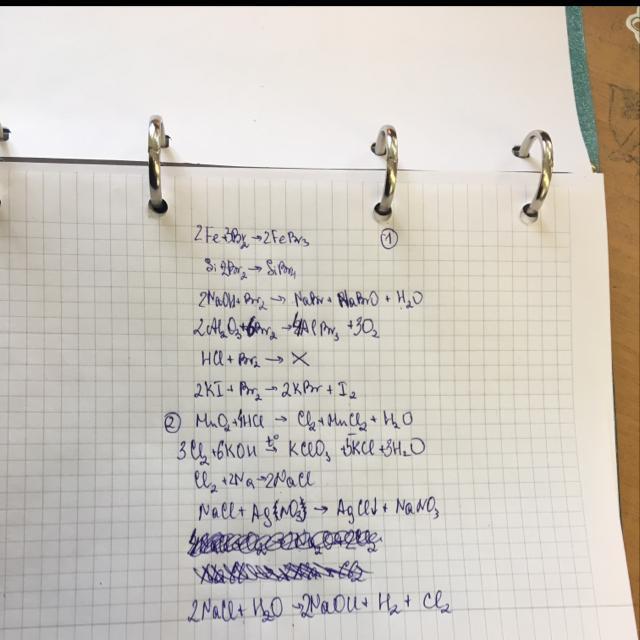 ①
2Fe+3Br₂→2FeBr₃
Si+2Br₂→SiBr₄
2NaOH+Br₂→NaBr+NaBrO+H₂O
2Al₂O₃+6Br₂→4AlBr₃+3O₂
HCl+Br₂→X
2KI+Br₂→2KBr+I₂
② MnO₂+4HCl→Cl₂+MnCl₂+H₂O
3Cl₂+6KOH t°→ KClO₃+5KCl+3H₂O
Cl₂+2Na→2NaCl
NaCl+AgNO₃→AgCl↓+NaNO₃
2NaCl+H₂O→2NaOH+H₂+Cl₂